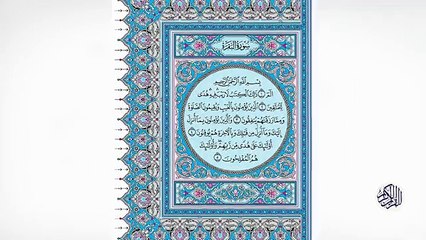 سورة البقرة
بسم الله الرحمن الرحيم
الم ١ ذلك الكتب لا ريب فيه هدى
للمتقين ٢ الذين يؤمنون بالغيب ويقيمون الصلوة
ومما رزقنهم ينفقون ٣ والذين يؤمنون بما أنزل
إليك وما أنزل من قبلك وبالآخرة هم يوقنون ٤
أولئك على هدى من ربهم وأولئك
هم المفلحون ٥
القرآن الكريم